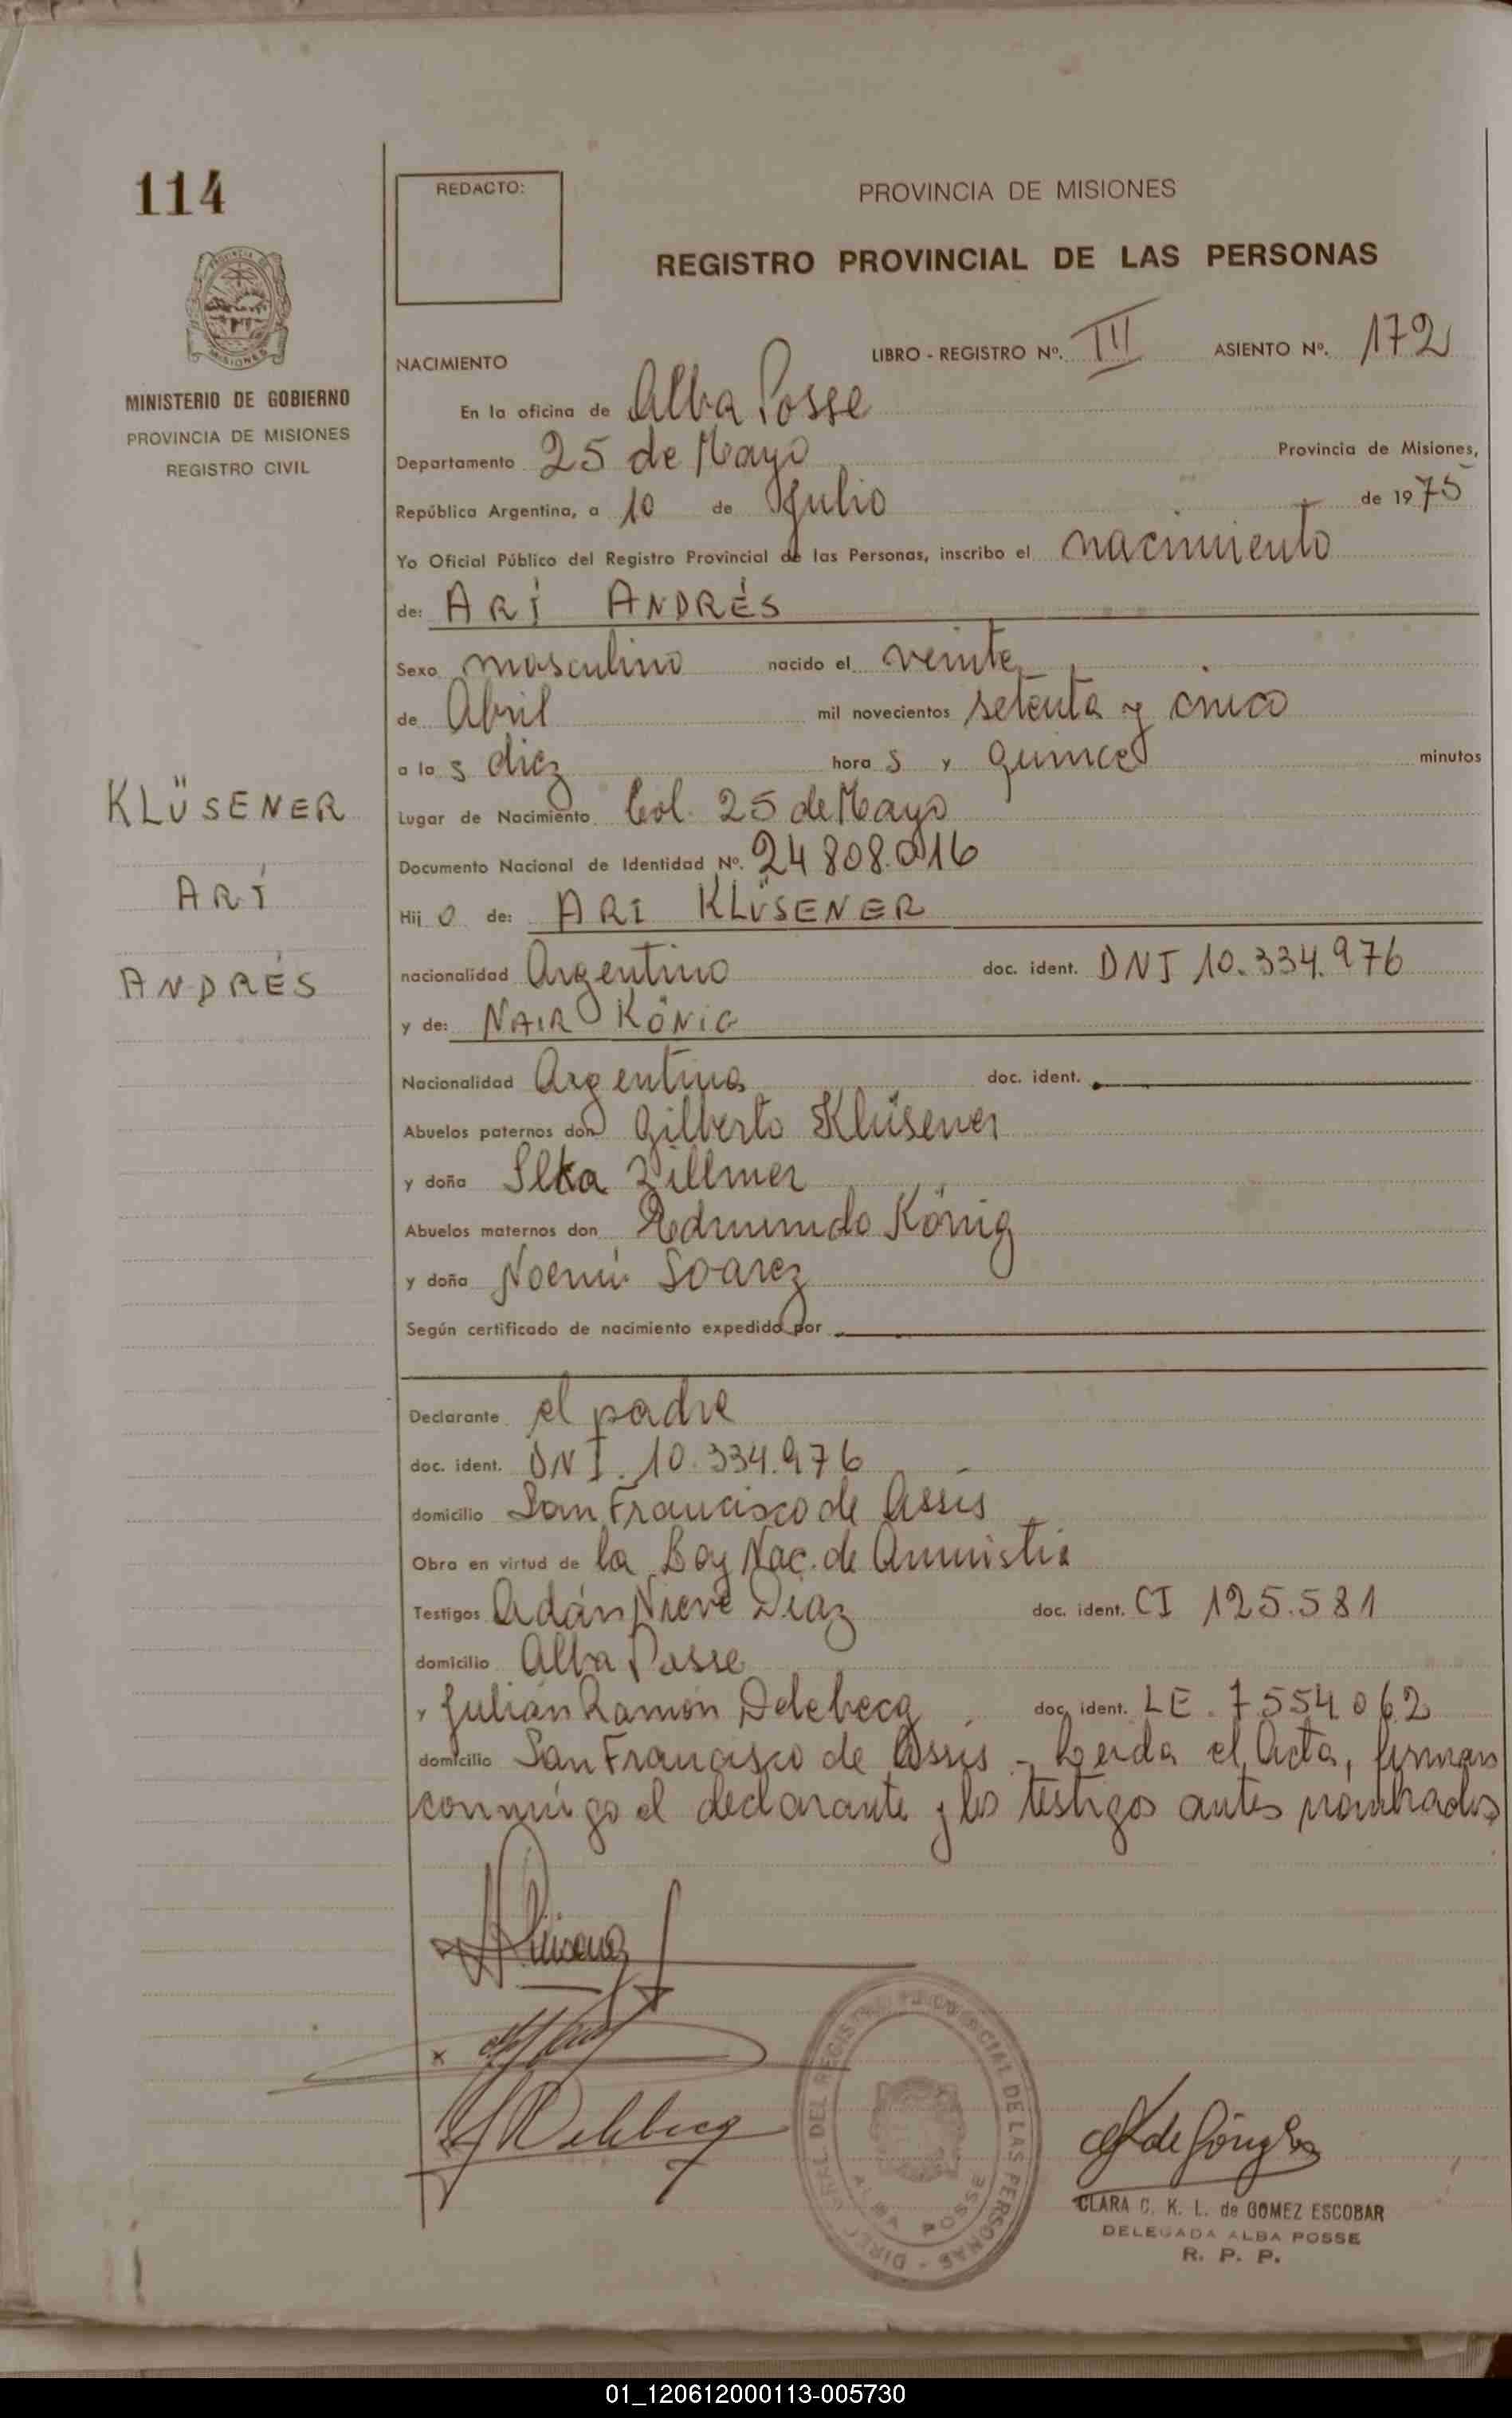 114
REDACTO:
PROVINCIA DE MISIONES
REGISTRO PROVINCIAL DE LAS PERSONAS
MISIONES
MINISTERIO DE GOBIERNO
PROVINCIA DE MISIONES
REGISTRO CIVIL
KLÜSENER
ARÍ
ANDRÉS
NACIMIENTO LIBRO - REGISTRO Nº. III ASIENTO Nº. 172
En la oficina de Alba Posse
Departamento 25 de Mayo Provincia de Misiones,
República Argentina, a 10 de Julio de 1975
Yo Oficial Público del Registro Provincial de las Personas, inscribo el nacimiento
de: ARÍ ANDRÉS
Sexo masculino nacido el veinte
de Abril mil novecientos setenta y cinco
a las diez horas y quince minutos
Lugar de Nacimiento Col. 25 de Mayo
Documento Nacional de Identidad Nº. 24 808.016
Hijo de: ARI KLÜSENER
nacionalidad Argentino doc. ident. DNI 10.334.976
y de: NAIR KÖNIG
Nacionalidad Argentina doc. ident.
Abuelos paternos don Gilberto Klüsener
y doña Ilka Zillmer
Abuelos maternos don Edmundo König
y doña Noemí Soarez
Según certificado de nacimiento expedido por
Declarante el padre
doc. ident. DNI. 10.334.976
domicilio San Francisco de Assís
Obra en virtud de la Ley Nac. de Amnistia
Testigos Adán Nieve Diaz doc. ident. CI 125.581
domicilio Alba Posse
y Julián Ramón Delebecq doc. ident. LE. 7554062
domicilio San Francisco de Assis - Leida el Acta, firman
conmigo el declarante y los testigos antes nombrados
DIREC. GRAL. DEL REGISTRO PROVINCIAL DE LAS PERSONAS -
ALBA POSSE
CLARA C. K. L. de GOMEZ ESCOBAR
DELEGADA ALBA POSSE
R. P. P.
01_120612000113-005730